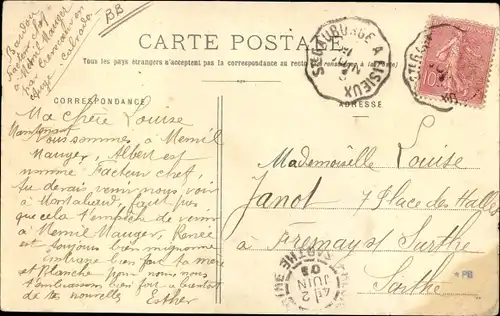 Baudou
Facteur chef
à Mesnil Mauger
par Crèvecœur en
Auge Calvados
BB
CARTE POSTALE
Tous les pays étrangers n'acceptent pas la correspondance au recto
STE GAUBURGE A LISIEUX
10
CORRESPONDANCE
ADRESSE
Ma chère Louise
Maintenant
nous sommes à Mesnil
Mauger, Albert est
nommé Facteur chef,
tu devais venir nous voir
à Montabard, faut pas
que cela t'empêche de venir
à Mesnil Mauger, Renée
est toujours bien mignonne
Embrasse bien fort ta mère
et Blanche pour nous nous
t'embrassons bien fort à bientôt
de tes nouvelles Esther
Mademoiselle Louise
Janot 7 Place des Halles
à Fresnay s/ Sarthe
Sarthe
SARTHE
2
JUIN
05
PB